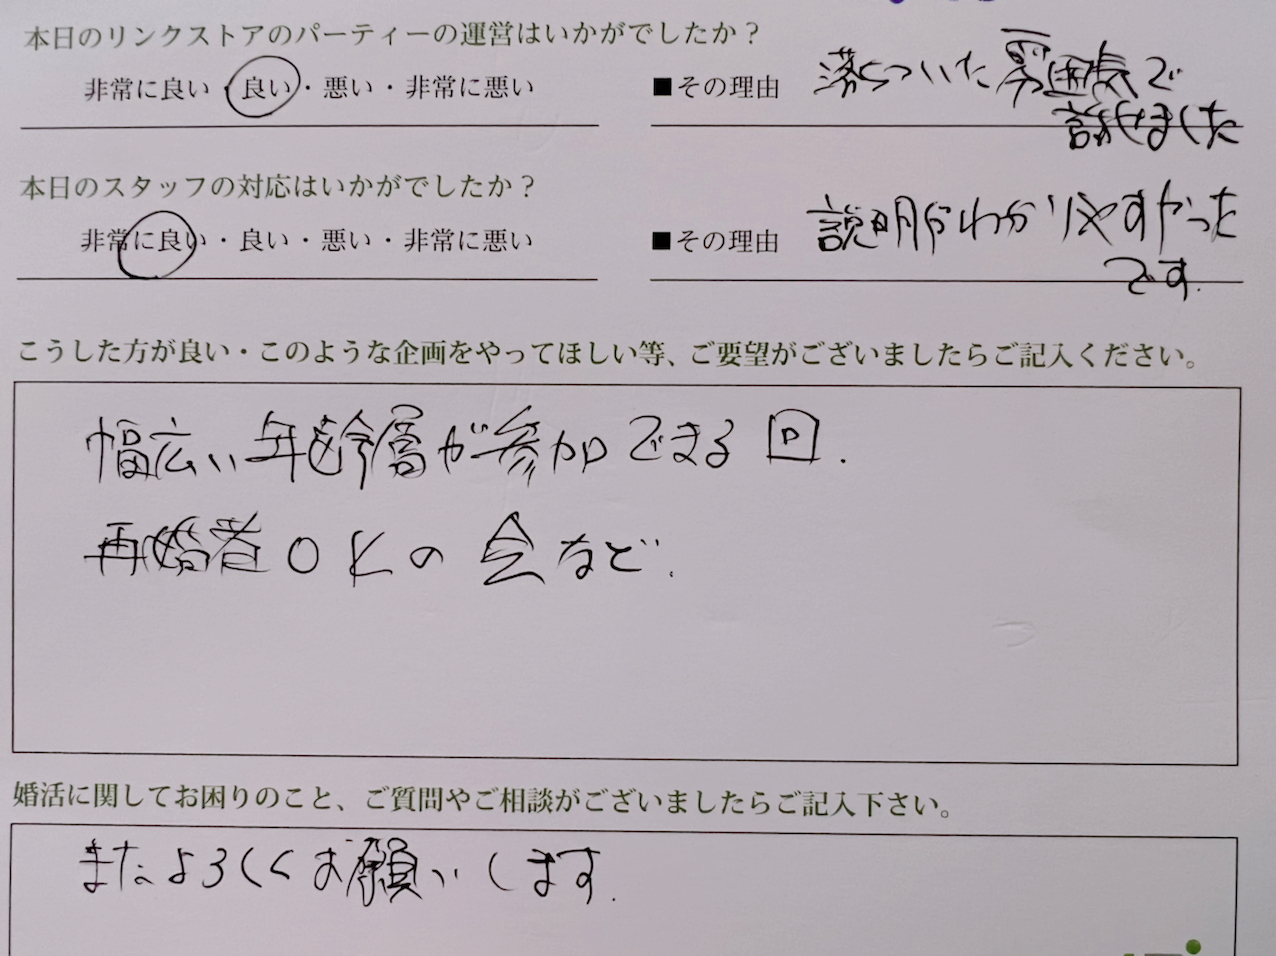 本日のリンクストアのパーティーの運営はいかがでしたか？
非常に良い・良い・悪い・非常に悪い
■その理由
落ちついた雰囲気で
話せました
本日のスタッフの対応はいかがでしたか？
非常に良い・良い・悪い・非常に悪い
■その理由
説明がわかりやすかった
です.
こうした方が良い・このような企画をやってほしい等、ご要望がございましたらご記入ください。
幅広い年齢層が参加できる回.
再婚者OKの会など.
婚活に関してお困りのこと、ご質問やご相談がございましたらご記入下さい。
またよろしくお願いします.